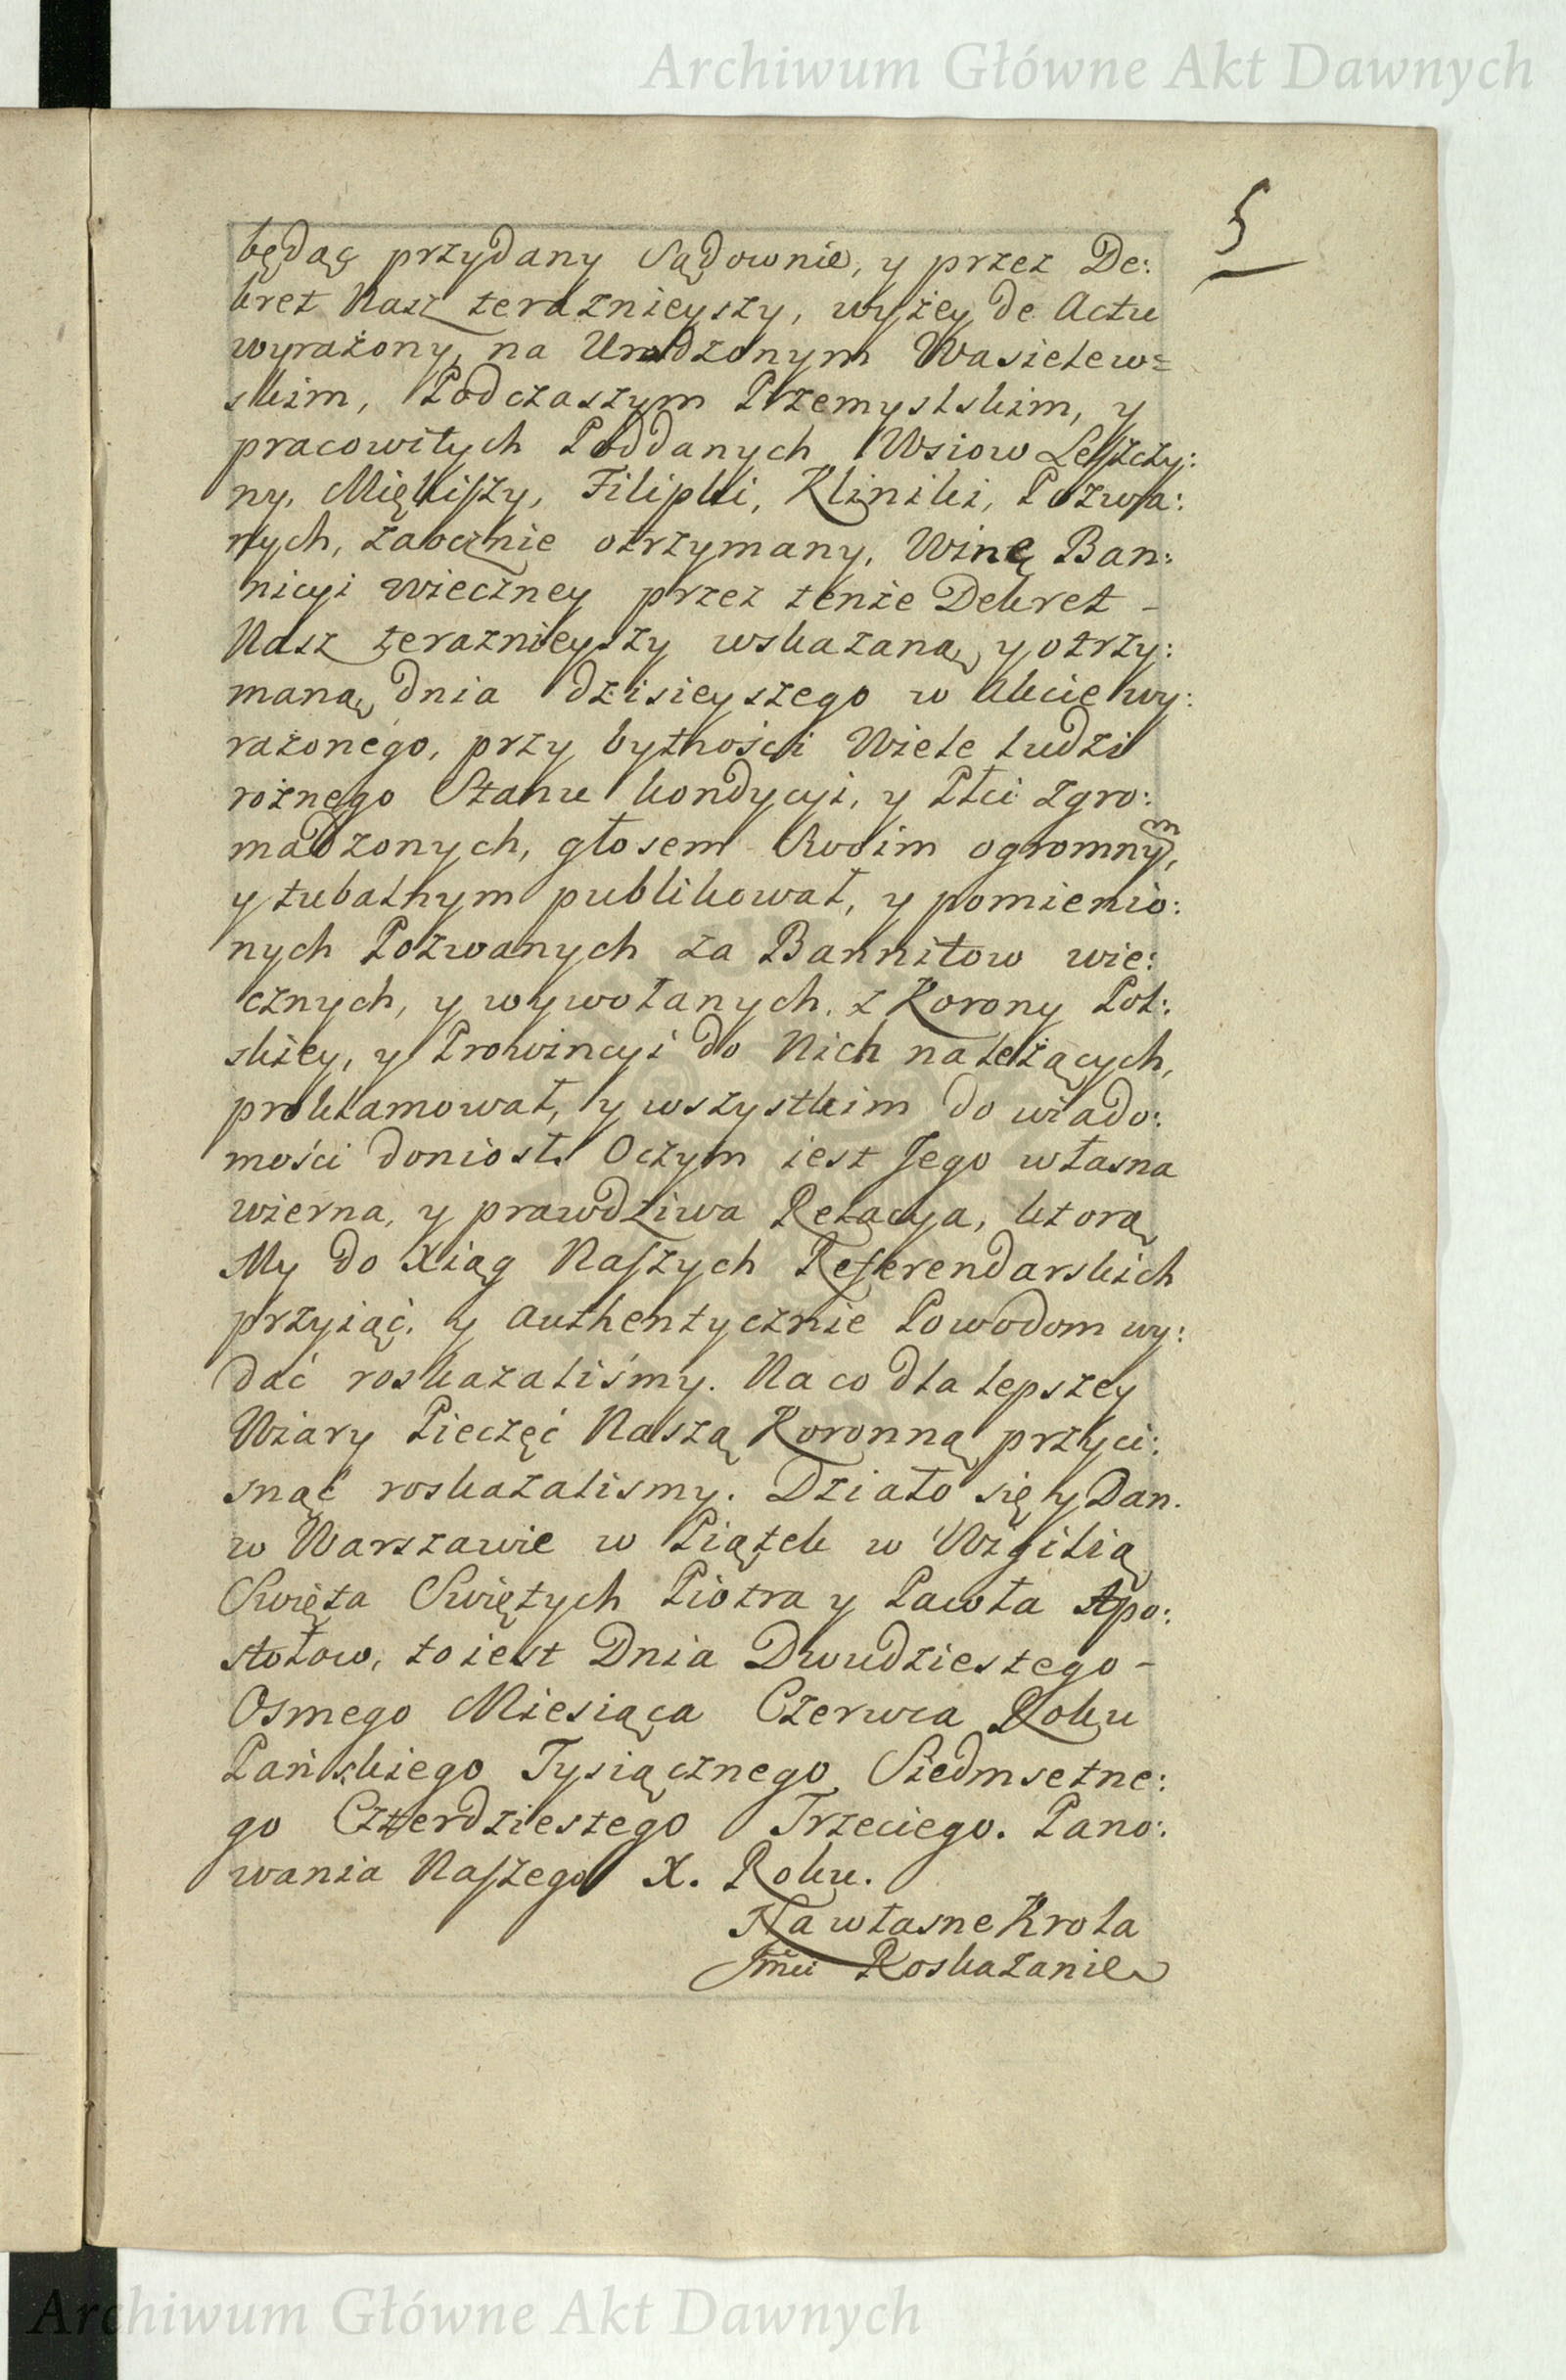 Archiwum Główne Akt Dawnych
5
będąc przydany Sądownie, y przez De:
kret Nasz teraznieyszy, wyżey de Actu
wyrażony, na Urodzonym Wasielew=
skim, Podczaszym Przemyslskim, y
pracowitych Poddanych Wsiow Leszczy:
ny, Miękiszy, Filipki, Kliniki, Pozwa:
nych, zaocznie otrzymany, Winę Ban:
nicyi wieczney przez tenże Dekret -
Nasz teraznieyszy wskazaną, y otrzy:
maną, dnia dzisieyszego w Akcie wy:
rażonego, przy bytności Wiele ludzi
rożnego Stanu kondycyi, y Płci zgro:
madzonych, głosem Swoim ogromnym,
y tubalnym publikował, y pomienio:
nych Pozwanych za Bannitow wie:
cznych, y wywołanych, z Korony Pol:
skiey, y Prowincyi do Nich należących,
proklamował, y wszystkim do wiado:
mości doniosł. Oczym iest Jego własna
wierna, y prawdziwa Relacya, ktorą
My do Xiąg Naszych Referendarskich
przyiąć, y authentycznie Powodom wy:
dać roskazaliśmy. Na co dla lepszey
Wiary Pieczęć Naszą Koronną przyci:
snąć roskazalismy. Działo się y Dan.
w Warszawie w Piątek w Wigilią
Swięta Swiętych Piotra y Pawła Apo:
stołow, to iest Dnia Dwudziestego -
Osmego Miesiąca Czerwca Roku
Pańskiego Tysiącznego Siedmsetne:
go Czterdziestego Trzeciego. Pano:
wania Naszego X. Roku.
Na własne Krola
Jmci Roskazanie
Archiwum Główne Akt Dawnych